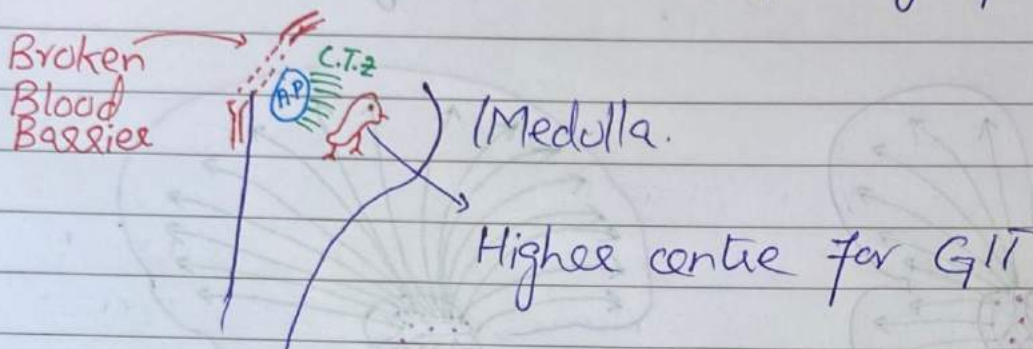 Broken
Blood
Barrier
C.T.Z
A.P
(Medulla.
Higher centre for GIT